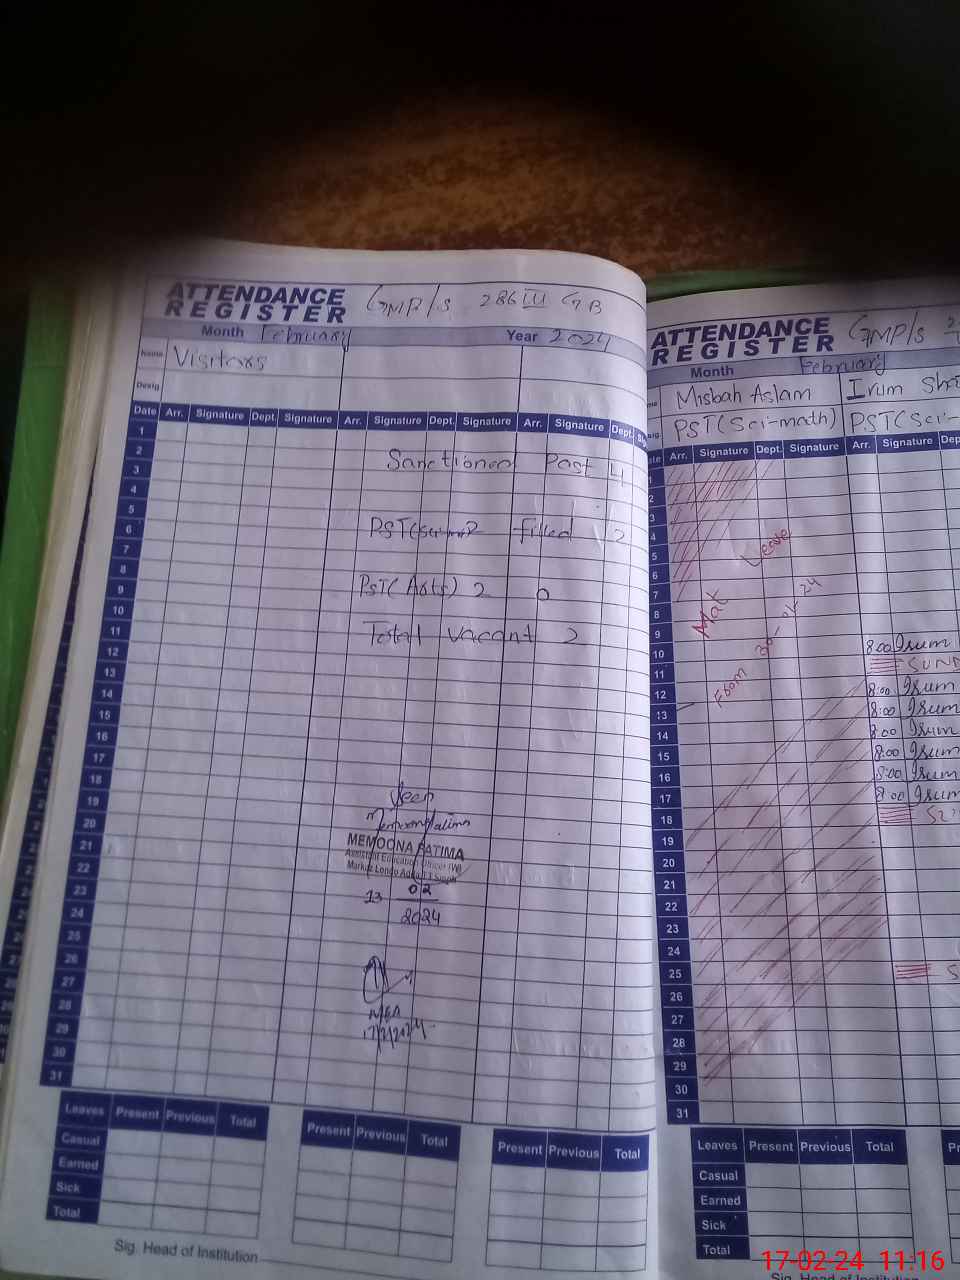 ATTENDANCE REGISTER GMP/s 286 III GB
Month February Year 2024
Name Visitors
Desig
Date Arr. Signature Dept. Signature Arr. Signature Dept. Signature Arr. Signature Dept.
1
2
3
4
5
6
7
8
9
10
11
12
13
14
15
16
17
18
19
20
21
22
23
24
25
26
27
28
29
30
31
Sanctioned Post 4
filled 2
PST(Arts) 2 0
Total vacant 2
Seen
MEMOONA FATIMA
Assistant Education Officer (W)
Markaz
13 02
2024
MEA
17/2/2024
Leaves Present Previous Total
Casual
Earned
Sick
Total
Present Previous Total
Present Previous Total
Sig. Head of Institution
ATTENDANCE REGISTER GMP/s
Month February
Misbah Aslam Irum
PST(Sci-math) PST(Sci-
Arr. Signature Dept. Signature Arr. Signature
1
2
3
4
5
6
7
8
9
10 8:00 Irum
11 SUND
12 8:00 Irum
13 8:00 Irum
14 8:00 Irum
15 8:00 Irum
16 8:00 Irum
17 8:00 Irum
18
19
20
21
22
23
24
25 S
26
27
28
29
30
31
Mat Leave
From 30-01-24
Leaves Present Previous Total
Casual
Earned
Sick
Total
17-02-24 11:16